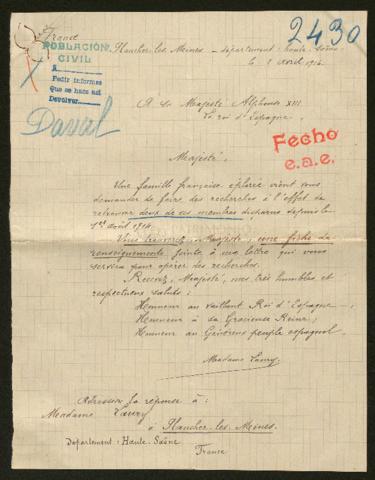 France
2430
POBLACIÓN
CIVIL
A
Pedir informes
Que se hace así
Devolver
Daval
Plancher-les-Mines - département: haute-Saône
le 8 avril 1916
A Sa Majesté Alphonse XIII
Le roi d'Espagne
Fecho
e.a.e.
Majesté,
Une famille française éplorée vient vous
demander de faire des recherches à l'effet de
retrouver deux de ses membres disparus depuis le
1er août 1914.
Vous trouverez, Majesté, une fiche de
renseignements jointe à ma lettre qui vous
servira pour opérer des recherches.
Recevez, Majesté, mes très humbles et
respectueux saluts:
Honneur au vaillant Roi d'Espagne;
Honneur à Sa Gracieuse Reine;
Honneur au Généreux peuple espagnol.
Madame Laury
Adresser la réponse à:
Madame Laury
à Plancher-les-Mines.
Département: Haute-Saône
France